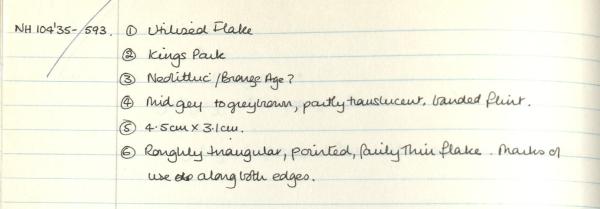 NH 104'35-593. ① Utilised Flake
② Kings Park
③ Neolithic/Bronze Age?
④ Mid grey to greybrown, partly translucent, banded flint.
⑤ 4.5cm × 3.1cm.
⑥ Roughly triangular, pointed, fairly thin flake. Marks of
use along both edges.